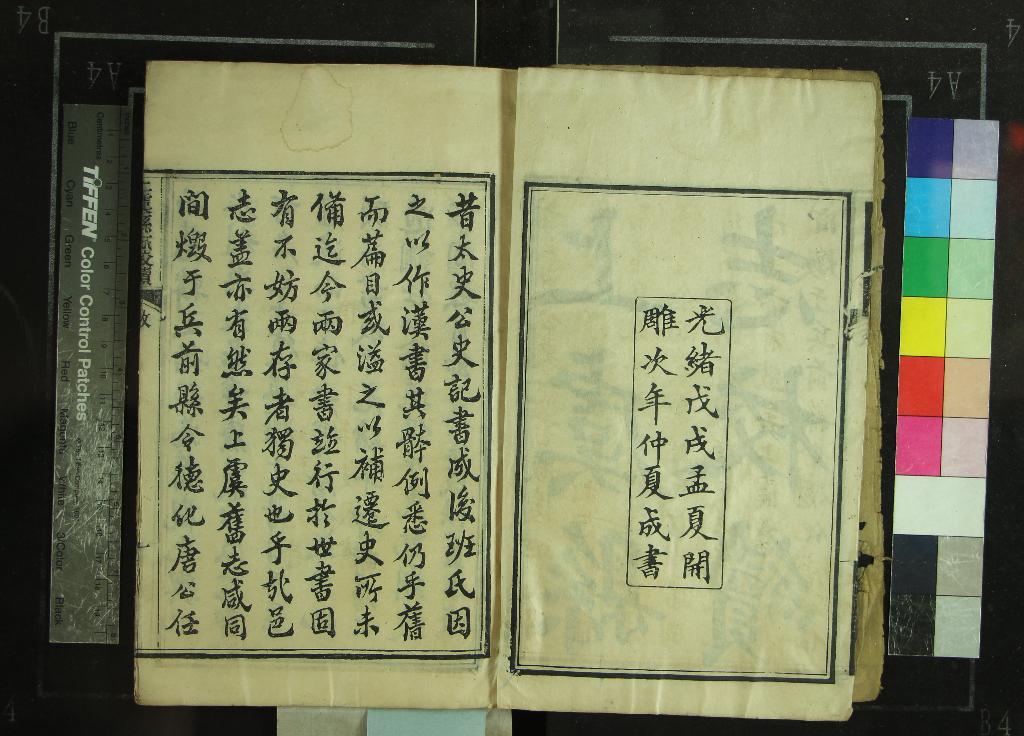 光緒戊戌孟夏開
雕次年仲夏成書
昔太史公史記書成後班氏因
之以作漢書其體例悉仍乎舊
而篇目或溢之以補遷史所未
備迄今兩家書並行於世書固
有不妨兩存者獨史也乎哉邑
志蓋亦有然矣上虞舊志咸同
間燬于兵前縣令德化唐公任
TIFFEN Color Control Patches
Centimetres
Blue
Cyan
Green
Yellow
Red
Magenta
White
3/Color
Black
B4
A4
A4
4
B4
4